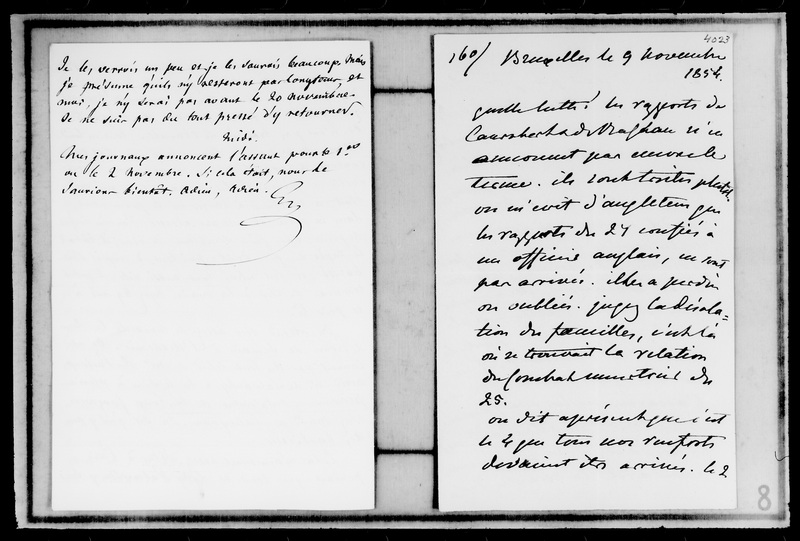 Je les verrois un peu et je les saurois beaucoup. Mais
je présume qu'ils n'y resteront pas longtemps, et
moi, je n'y serai pas avant le 20 novembre.
Je ne suis pas du tout pressé d'y retourner.
Midi.
Mes journaux annoncent l'assaut pour le 1er
ou le 2 novembre. Si cela étoit, nous le
saurions bientôt. Adieu, Adieu.
4023
160/ Bruxelles le 9 novembre
1854.
quelle lutte! les rapports de
Canrobert & de Raglan n'en
annoncent pas encore le
terme. ils sont tristes plutôt.
on m'écrit d'angleterre que
les rapports du 27 confiés à
un officier anglais, ne sont
pas arrivés. il les a perdu
ou oubliés. jugez la désola=
tion des familles, c'est là
où se trouvait la relation
du Combat meurtrier du
25.
on dit aprésent que c'est
le 4 que tous nos renforts
devaient être arrivés. le 2
8